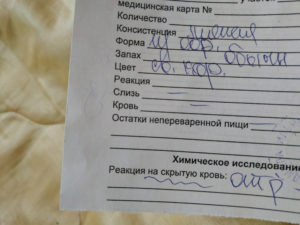 медицинская карта №
Количество
Консистенция
Форма
Запах обычн
Цвет св. кор.
Реакция
Слизь —
Кровь —
Остатки непереваренной пищи
Химическое исследовани
Реакция на скрытую кровь: отр